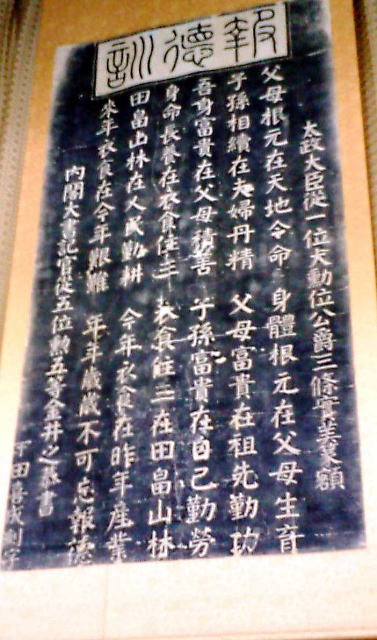 報德訓
太政大臣從一位大勲位公爵三條實美篆額
父母根元在天地令命 身體根元在父母生育
子孫相續在夫婦丹精 父母富貴在祖先勤功
吾身富貴在父母積善 子孫富貴在自己勤勞
身命長養在衣食住三 衣食住三在田畠山林
田畠山林在人民勤耕 今年衣食在昨年産業
來年衣食在今年艱難 年年歳歳不可忘報德
内閣大書記官從五位勲五等金井之恭書
田喜成刻字